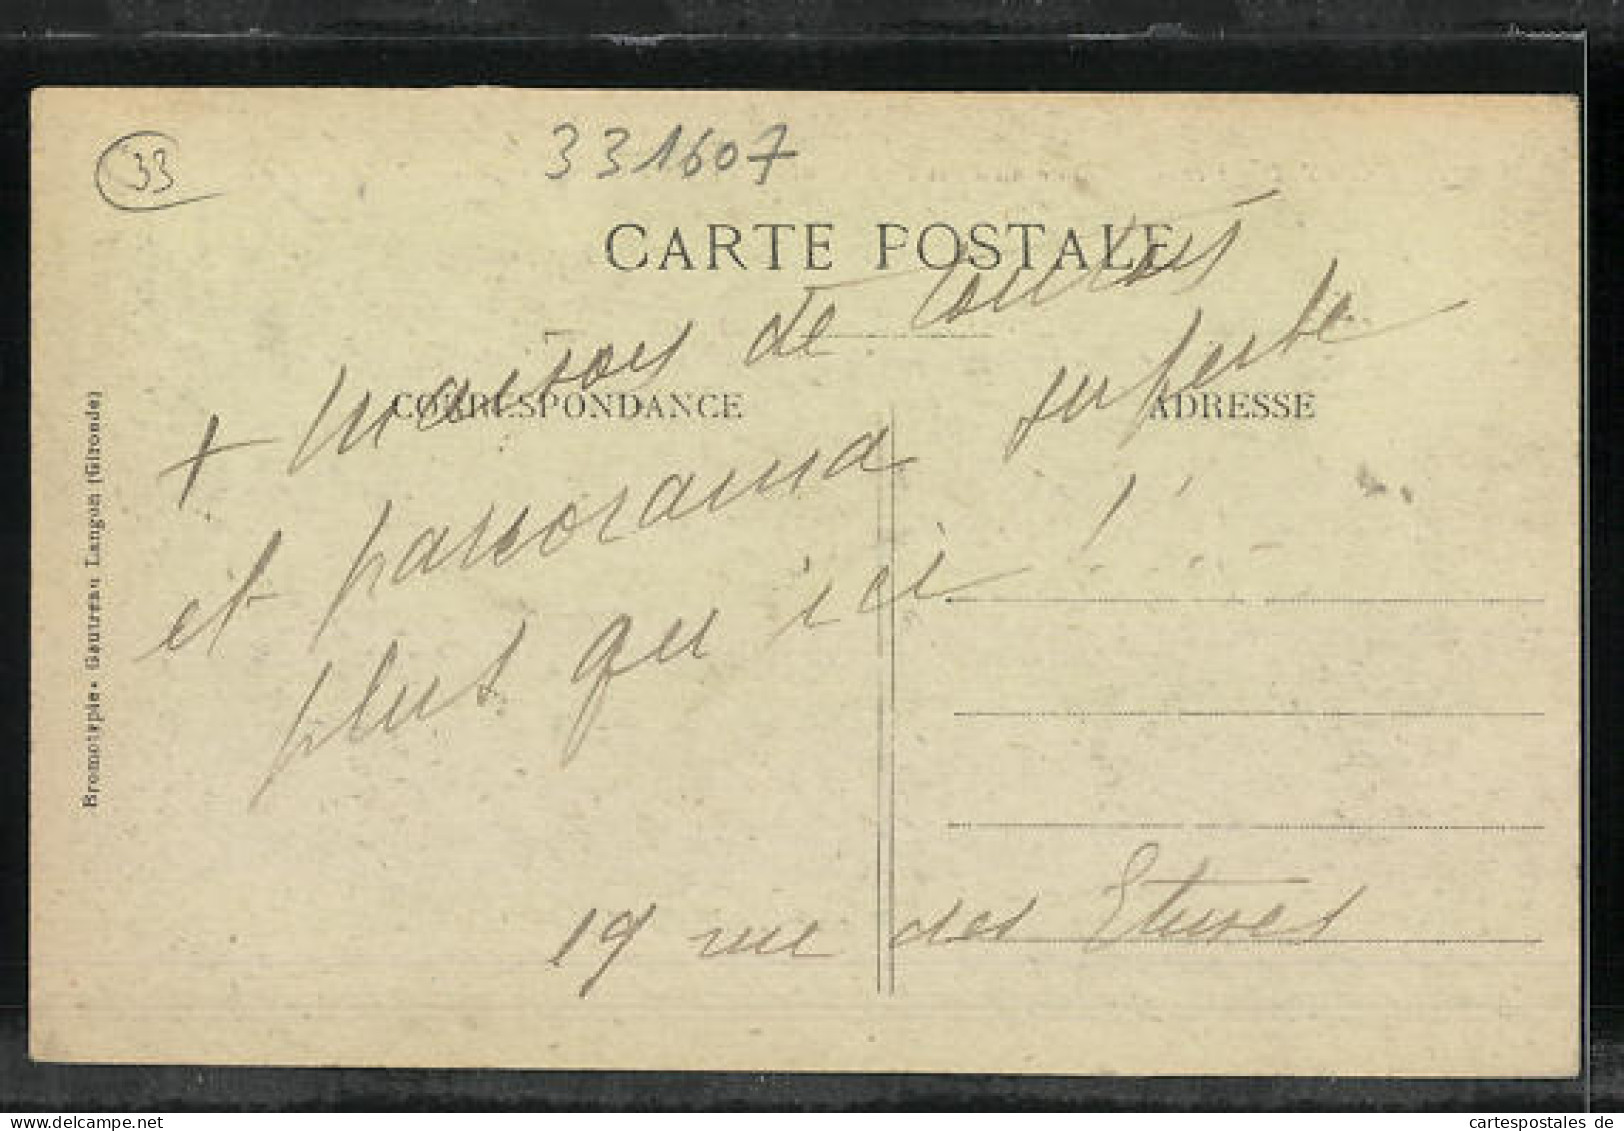 33
331607
CARTE POSTALE
+ maisons de
CORRESPONDANCE
ADRESSE
et panorama superbe
plus qu'ici !
19 rue des Etuves
Bromotypie - Gautreau Langon (Gironde)
cartespostales de